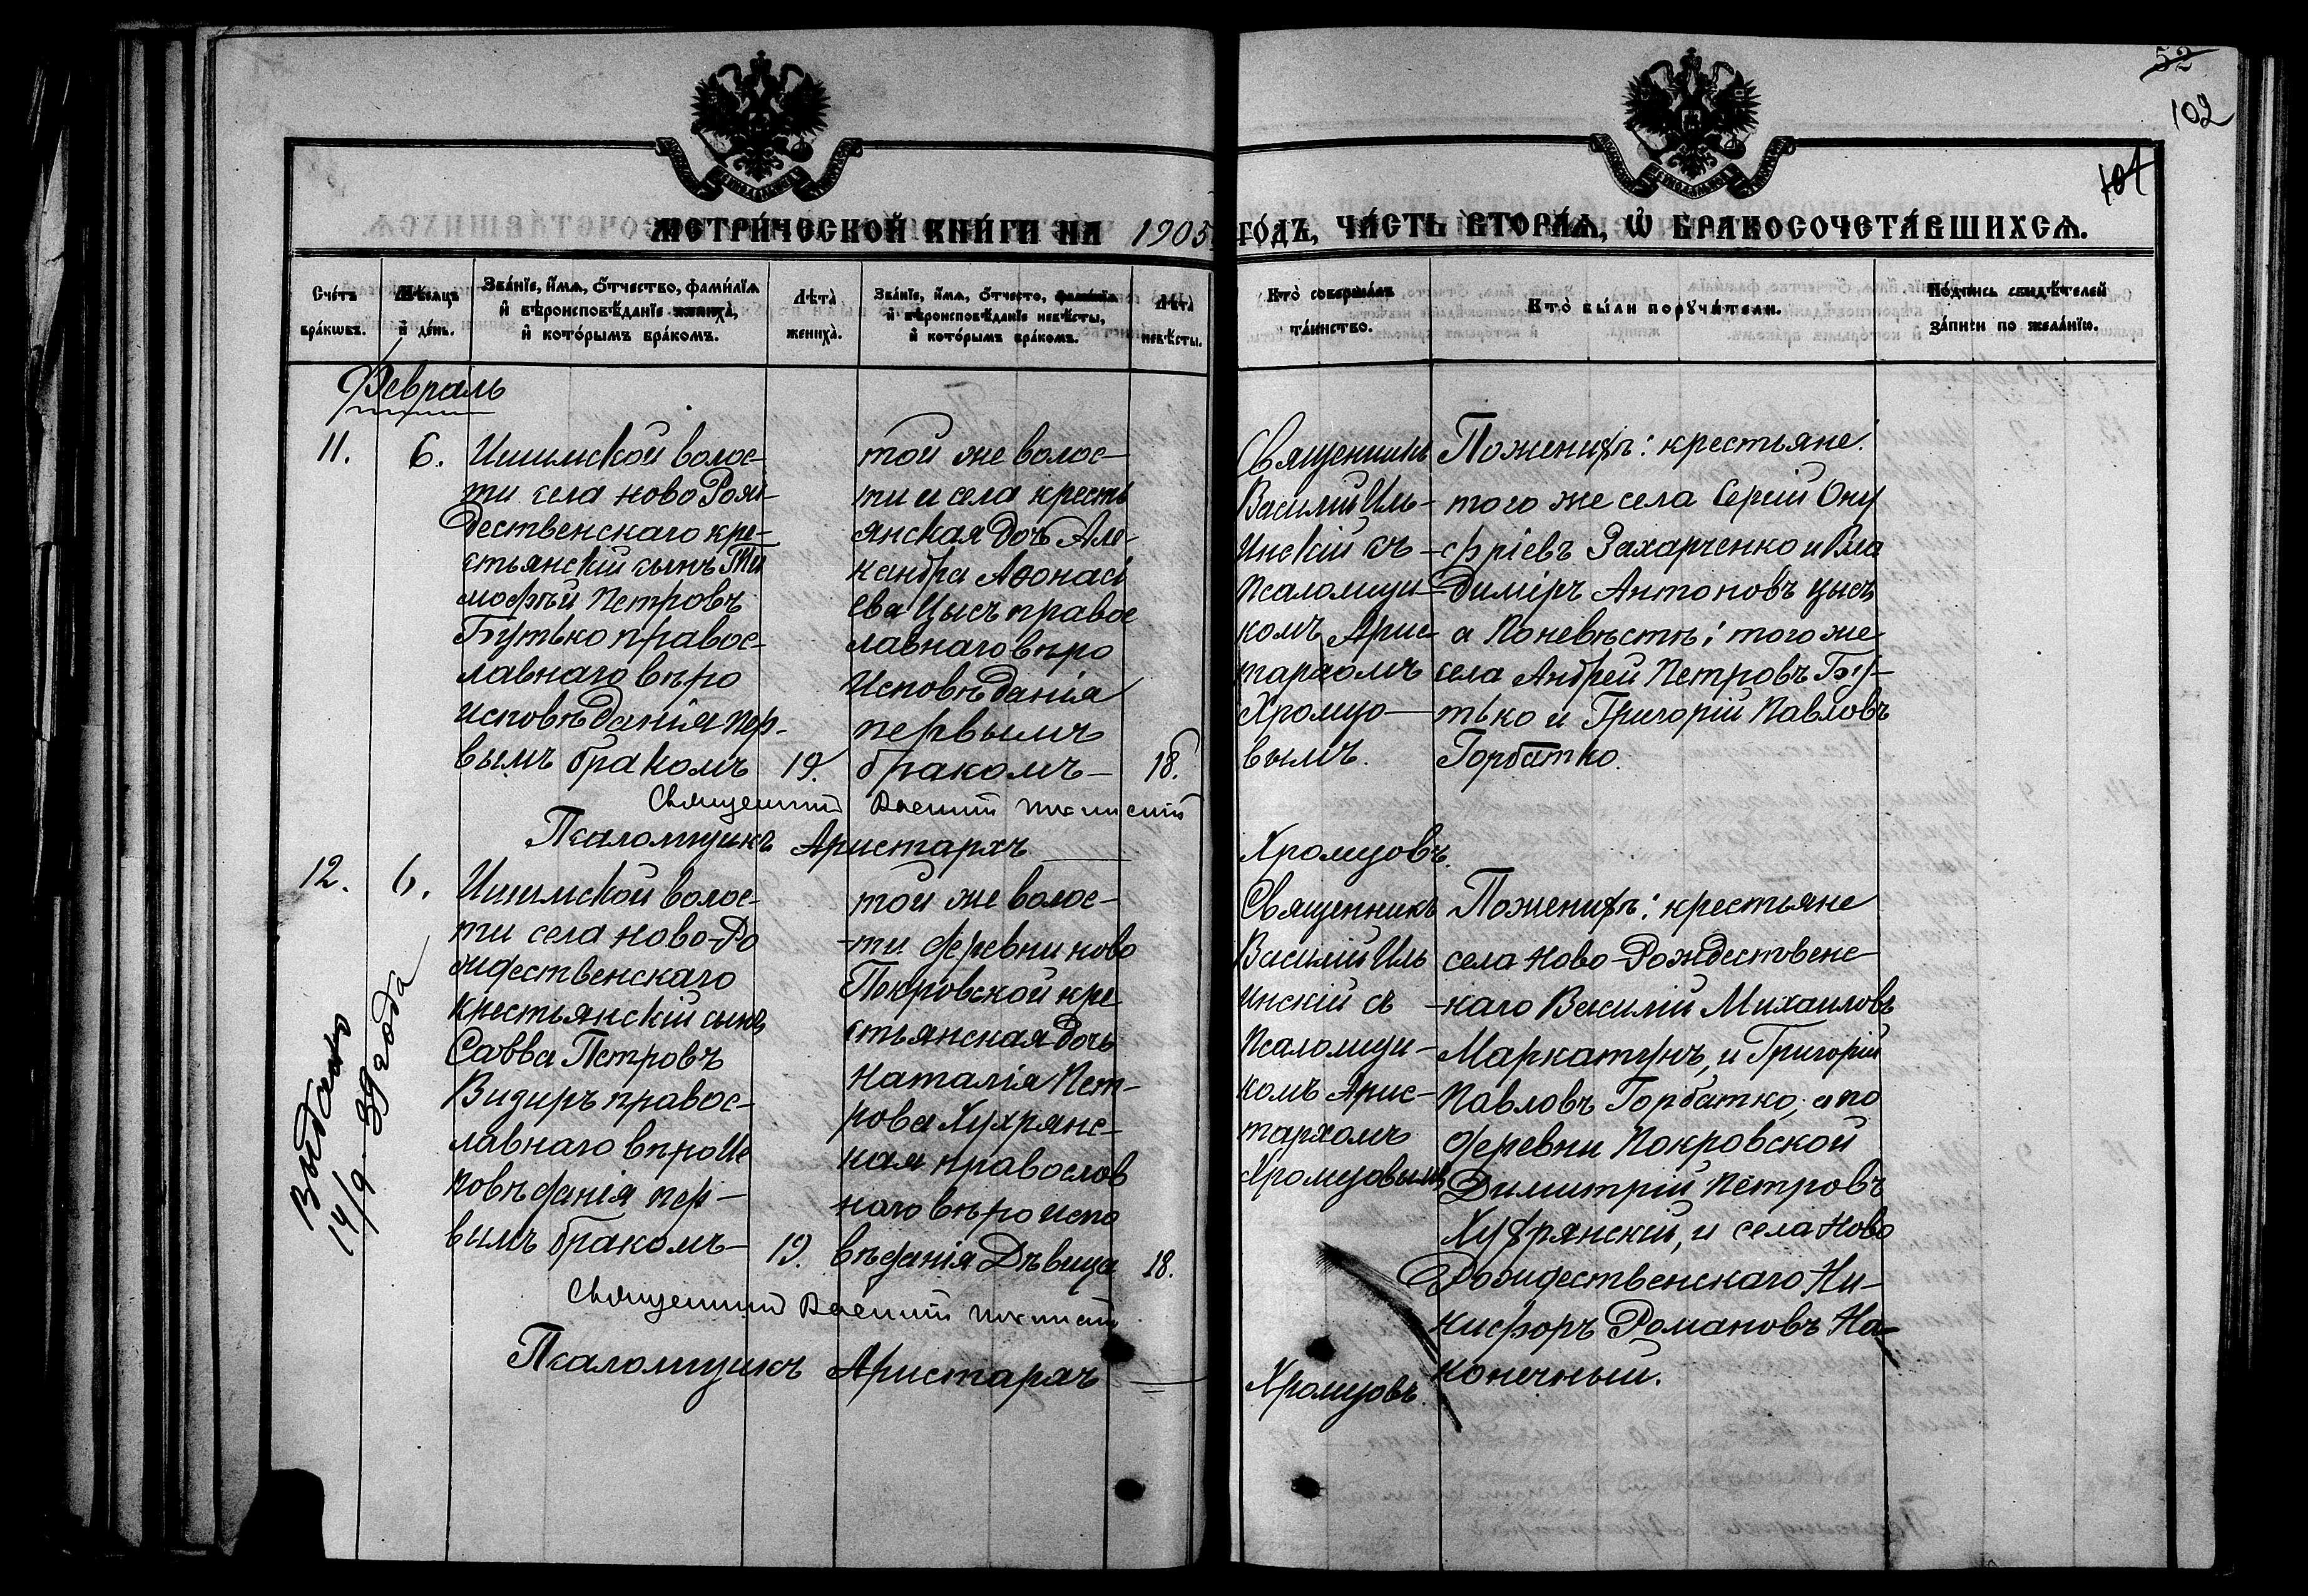 52
102
101
МЕТРИ́ЧЕСКОЙ КНИ́ГИ НА 1905 ГО́ДЪ, ЧА́СТЬ ВТОРА́Ѧ, Ѡ҆ БРАКОСОЧЕТА́ВШИХСѦ.
Сче́тъ бра́кѡвъ.
Мѣ́сѧцъ и҆ де́нь.
Зва́нїе, и҆́мѧ, ѻ҆́тчество, фами́лїѧ и҆ вѣроисповѣ́данїе жениха̀, и҆ кото́рымъ бра́комъ.
Лѣ́та̀ жениха̀.
Зва́нїе, и҆́мѧ, ѻ҆́тчество, фами́лїѧ и҆ вѣроисповѣ́данїе невѣ́сты, и҆ кото́рымъ бра́комъ.
Лѣ́та̀ невѣ́сты.
Кто̀ соверша́лъ та́инство.
Кто̀ бы́ли порꙋчи́тели.
По́дпись свидѣ́телей за́писи по жела́нїю.
Февраль
11.
6.
Ишимской волос-
ти села ново Рож-
дественскаго кре-
стьянскій сынъ Ти
мофей Петровъ
Бутько правос-
лавнаго веро
исповеданія пер-
вымъ бракомъ
19.
той же волос-
ти и села кресть
янская дочь Але-
кандра Афонасі
ева Цысъ правос
лавнаго веро
исповеданія
первымъ
бракомъ-
18.
Священникъ
Василій Иль-
инскій съ
Псаломщи-
комъ Арис-
тархомъ
Хромцо-
вымъ.
По женихѣ: крестьяне:
того же села Сергій Ону
фріевъ Захарченко и Вла
диміръ Антоновъ Цысъ
а по невѣстѣ: того же
села Андрей Петровъ Бу-
тько и Григорій Павловъ
Горбатко.
Священникъ Василій Ильинскій
Псаломщикъ Аристархъ Хромцовъ.
12.
6.
Выдано
14/9-39 года
Ишимской волос-
ти села ново-Ро
ждественскаго
крестьянскій сынъ
Савва Петровъ
Визиръ правос-
лавнаго вероис
поведанія пер-
вымъ бракомъ-
19.
той же волос-
-ти деревни ново
Покровской кре
стьянская дочь
Наталія Пет-
рова Хухрянс-
кая православ
наго вероиспо
веданія Девица
18.
Священникъ
Василій Иль
инскій съ
Псаломщи-
комъ Арис-
тархомъ
Хромцовымъ
По женихѣ: крестьяне
села Ново-Рождественс-
-каго Василій Михаиловъ
Маркатунъ, и Григорій
Павловъ Горбатко, а по
деревни Покровской
Димитрій Петровъ
Хухрянскій, и села Ново
Рождественскаго Ни-
кифоръ Романовъ На-
конечный.
Священникъ Василій Ильинскій
Псаломщикъ Аристархъ Хромцовъ.